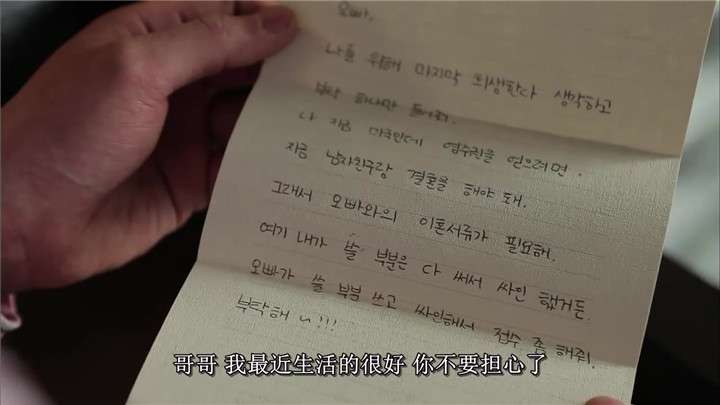 오빠.
나를 위해 마지막 희생한다 생각하고
부탁 하나만 들어줘.
나 지금 미국인데 영주권을 얻으려면.
지금 남자친구랑 결혼을 해야 돼.
그래서 오빠와의 이혼서류가 필요해.
여기 내가 쓸 부분은 다 써서 싸인 했거든.
오빠가 쓸 부분 쓰고 싸인해서 접수 좀 해줘.
부탁해 !!!
哥哥 我最近生活的很好 你不要担心了